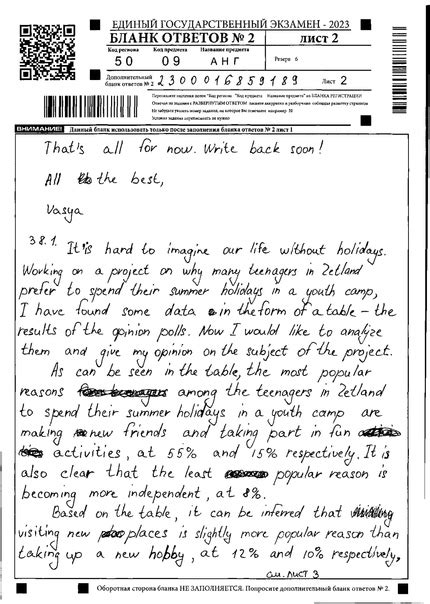 ЕДИНЫЙ ГОСУДАРСТВЕННЫЙ ЭКЗАМЕН - 2023
БЛАНК ОТВЕТОВ № 2 ЛИСТ 2
Код региона Код предмета Название предмета
50 09 АНГ Резерв 6
Дополнительный
бланк ответов № 2 2300016859189 Лист 2
ВНИМАНИЕ! Данный бланк использовать только после заполнения бланка ответов № 2 лист 1
That's all for now. Write back soon!
All the best,
Vasya
38.1. It's hard to imagine our life without holidays.
Working on a project on why many teenagers in Zetland
prefer to spend their summer holidays in a youth camp,
I have found some data in the form of a table – the
results of the opinion polls. Now I would like to analyze
them and give my opinion on the subject of the project.
As can be seen in the table, the most popular
reasons among the teenagers in Zetland
to spend their summer holidays in a youth camp are
making new friends and taking part in fun
activities, at 55% and 15% respectively. It is
also clear that the least popular reason is
becoming more independent, at 8%.
Based on the table, it can be inferred that
visiting new places is slightly more popular reason than
taking up a new hobby, at 12% and 10% respectively.
см. лист 3
Оборотная сторона бланка НЕ ЗАПОЛНЯЕТСЯ. Попросите дополнительный бланк ответов № 2.